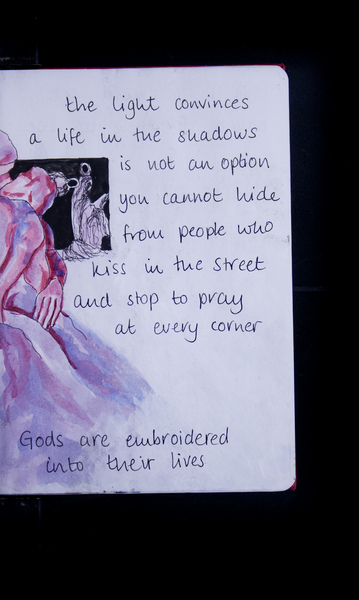 the light convinces
a life in the shadows
is not an option
you cannot hide
from people who
kiss in the street
and stop to pray
at every corner
Gods are embroidered
into their lives